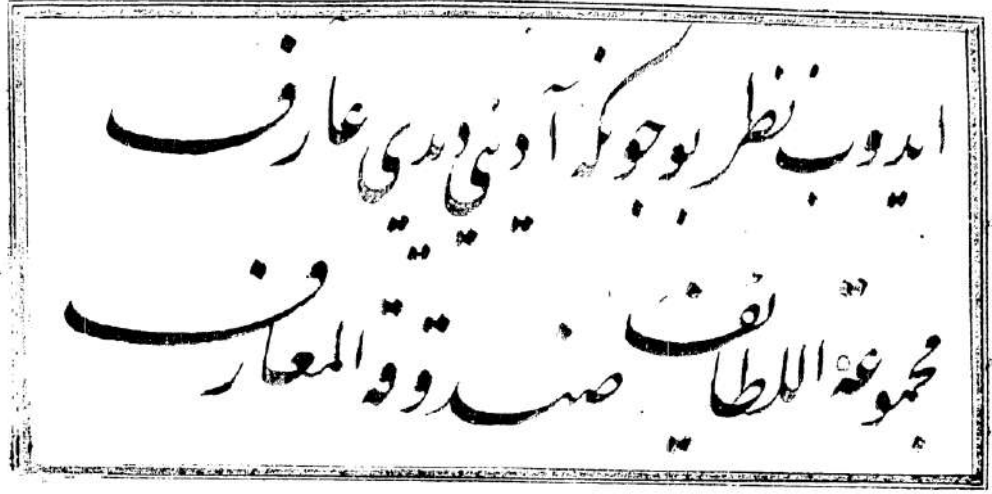 ايدوب نظر بو جونكه آديني ديدي عارف
مجموعة اللطائف صندوقة المعارف